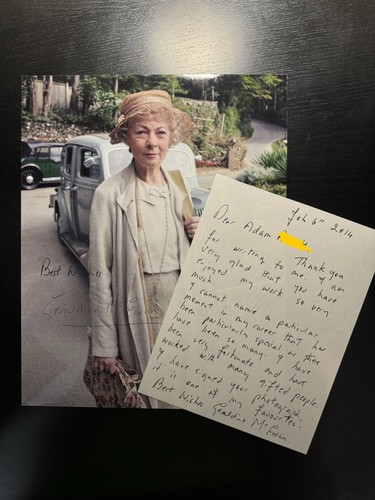 Best Wishes
Geraldine McEwan
Feb 6th 2014
Dear Adam
Thank you
for writing to me. I am
very glad that you have
enjoyed my work so very
much.
I cannot name a particular
moment in my career that has
been particularly special as there
have been so many. I have
been very fortunate and have
worked with many gifted people.
I have signed your photograph,
it is one of my favourites.
Best Wishes
Geraldine McEwan.